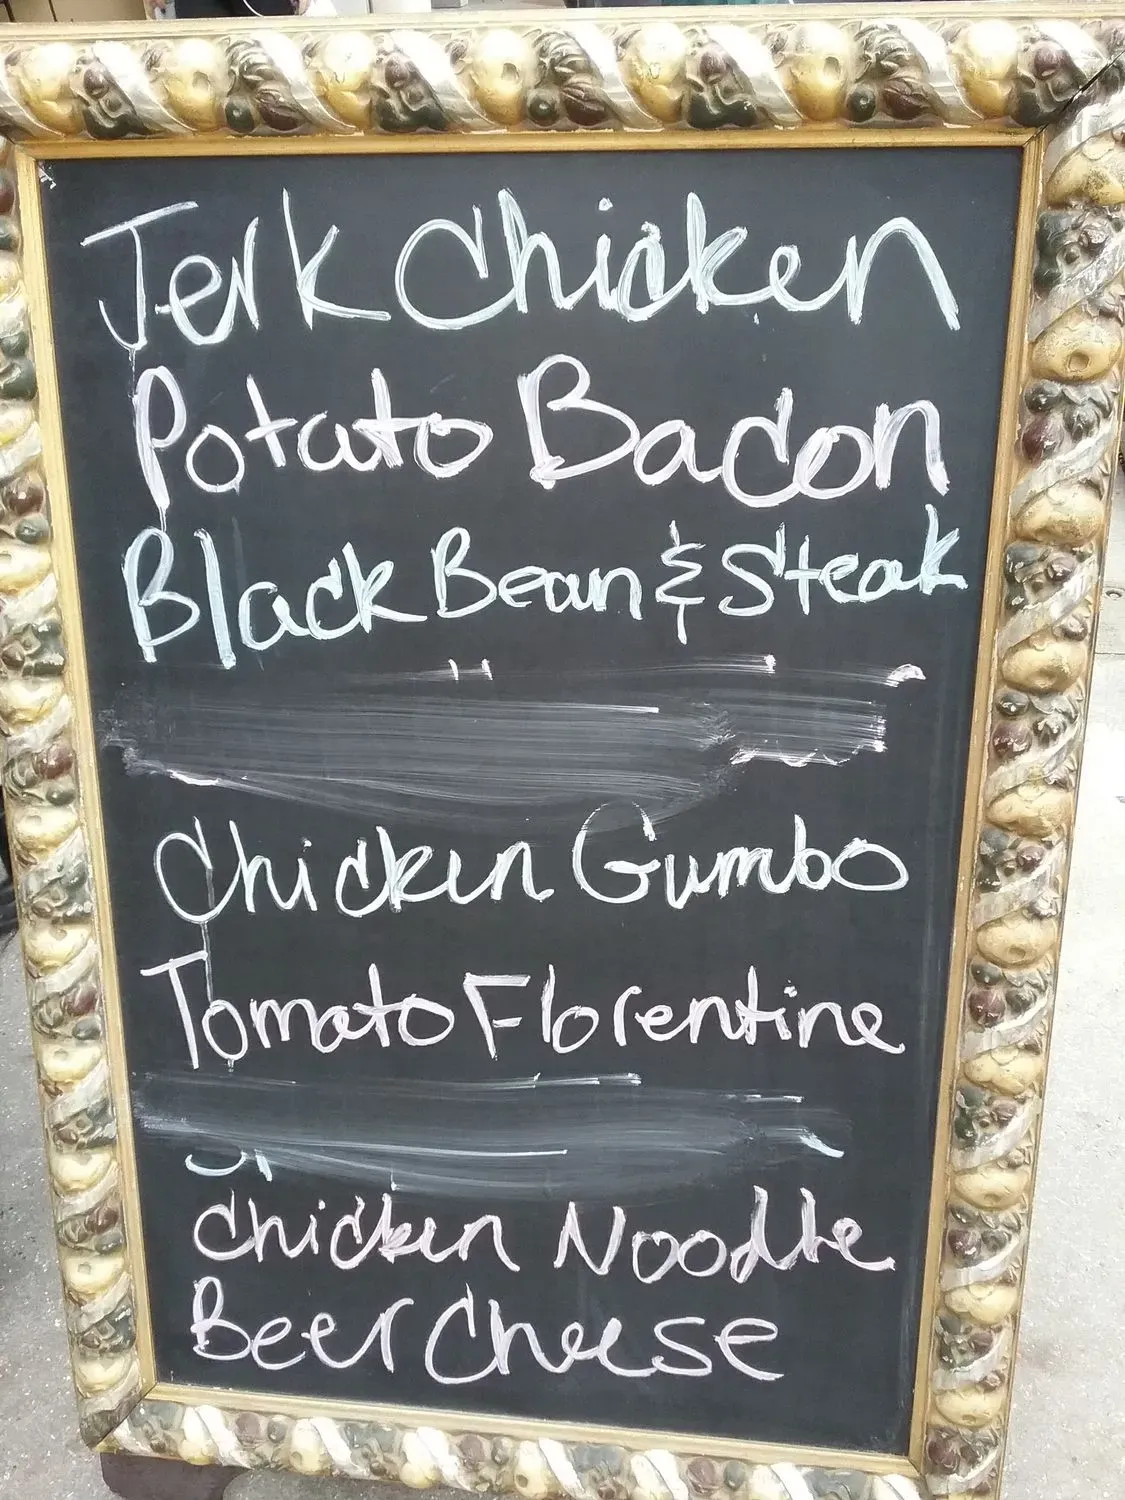 Jerk Chicken
Potato Bacon
Black Bean & Steak
Chicken Gumbo
Tomato Florentine
Chicken Noodle
Beer Cheese